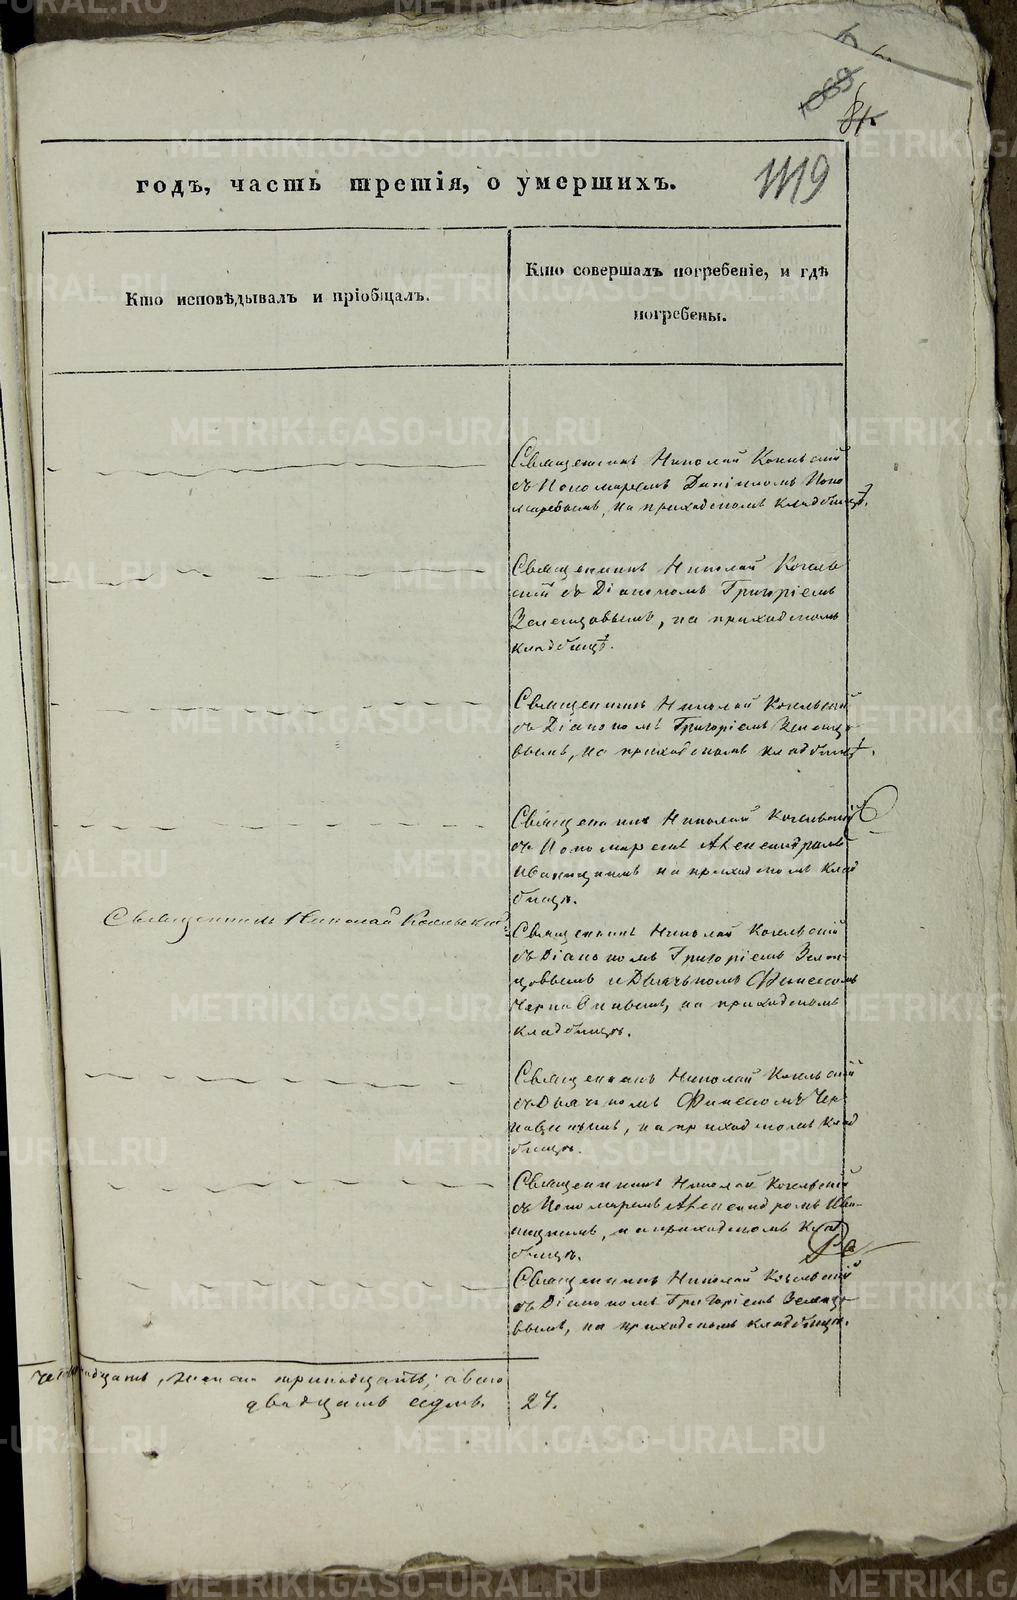 1119
годъ, часть третія, о умершихъ.
Кто исповѣдывалъ и пріобщалъ.
Кто совершалъ погребеніе, и гдѣ
погребены.
Священникъ Николай Козельскій
съ Пономаремъ Даніиломъ Поно
маревымъ, на приходскомъ кладбищѣ.
Священникъ Николай Козель
скій съ Діакономъ Григоріемъ
Зеленцовымъ, на приходскомъ
кладбищѣ.
Священникъ Николай Козельскій
съ Діакономъ Григоріемъ Зеленцо-
вымъ, на приходскомъ кладбищѣ.
Священникъ Николай Козельскій
съ Пономаремъ Александромъ
на приходскомъ клад
бищѣ.
Священникъ Николай Козельскій
Священникъ Николай Козельскій
съ Діакономъ Григоріемъ Зелен-
цовымъ и Дьячкомъ Финесомъ
на приходскомъ
кладбищѣ.
Священникъ Николай Козельскій
съ Дьячкомъ Финесомъ
на приходскомъ клад
бищѣ.
Священникъ Николай Козельскій
съ Пономаремъ Александромъ
на приходскомъ клад
бищѣ.
Священникъ Николай Козельскій
съ Діакономъ Григоріемъ Зеленцо-
вымъ, на приходскомъ кладбищѣ.
женска тринадцать; обоего
двадцать седмь. 27.
METRIKI.GASO-URAL.RU